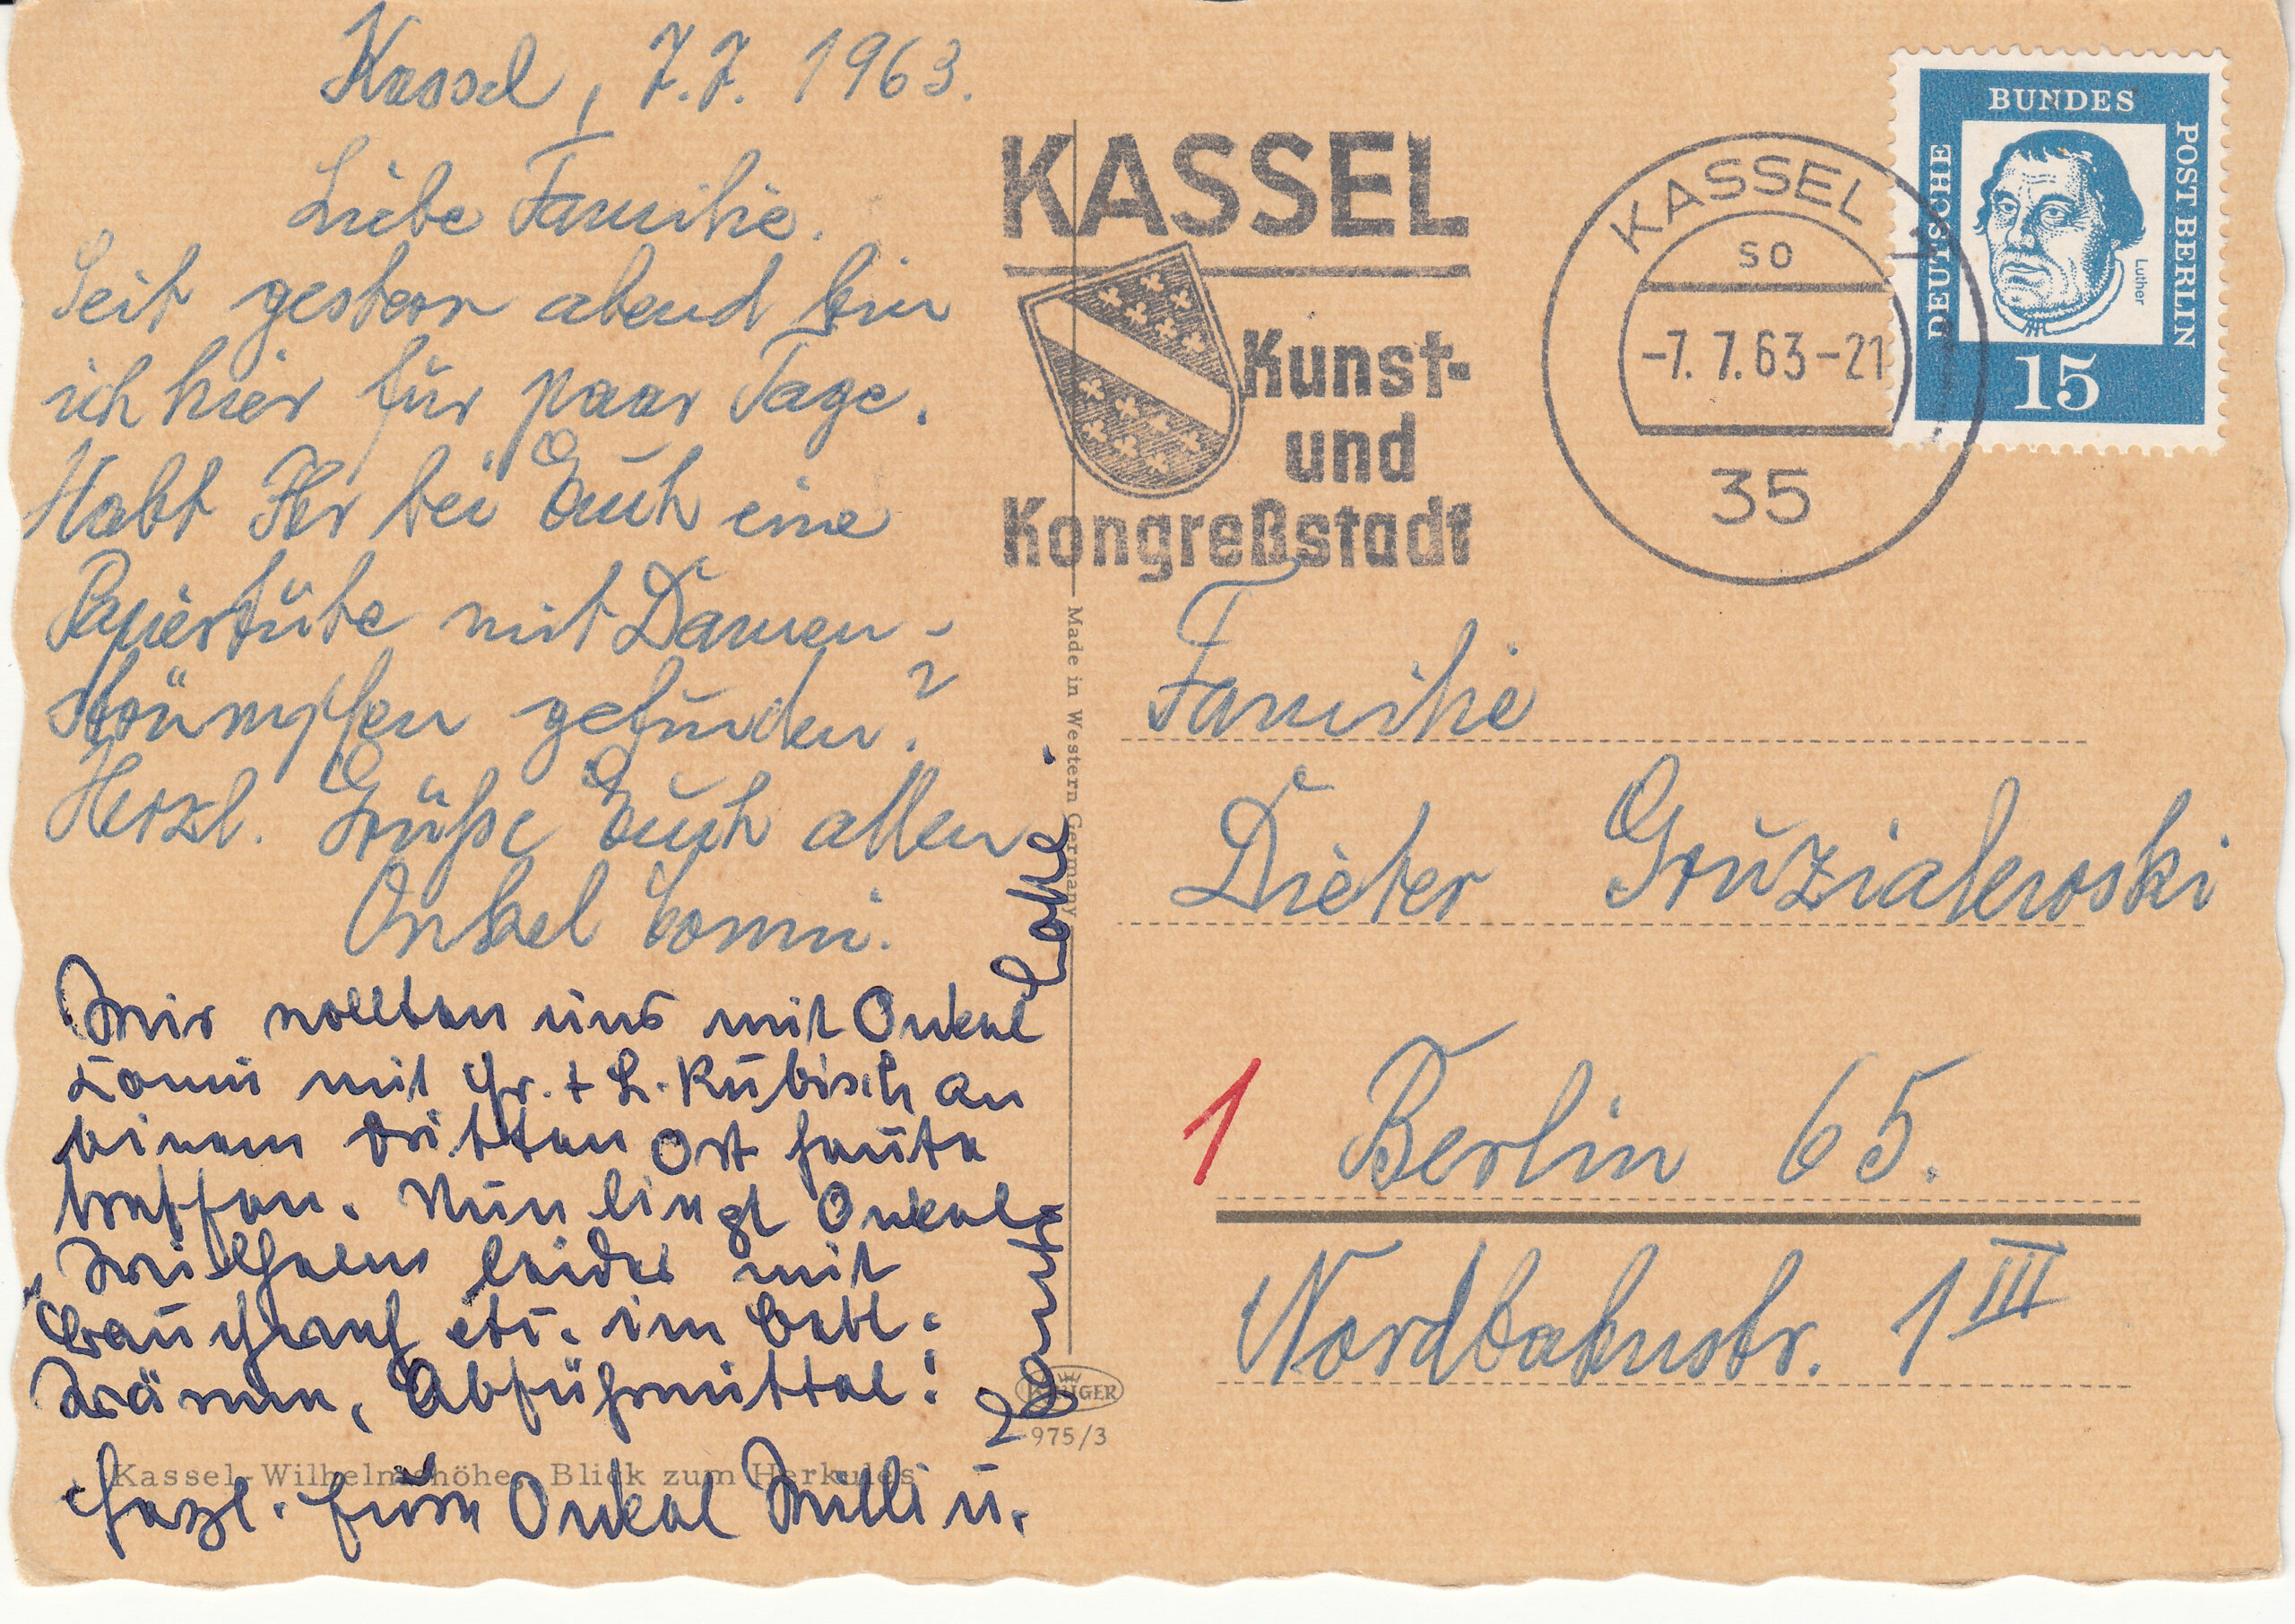 Kassel, 7.7. 1963.
Liebe Familie.
Seit gestern abend bin
ich hier für paar Tage.
Habt Ihr bei Euch eine
Papiertüte mit Damen-
strümpfen gefunden?
Herzl. Grüße Euch allen
Onkel Tommi.
Wir wollten uns mit Onkel
Tommi mit Gr. + L. Kubisch an
einem dritten Ort heute
treffen. Nun liegt Onkel
Wilhelm leider mit
etc. im Bett:
Wärme, Abführmittel!
Herzl. Grüße Onkel Willi u.
Tante
KASSEL
Kunst-
und
Kongreßstadt
KASSEL
SO
-7. 7. 63-21
35
DEUTSCHE
BUNDES
POST BERLIN
Luther
15
Familie
Dieter Gruzialewski
1 Berlin 65.
Nordbahnstr. 1 III
Made in Western Germany
KRÜGER
975/3
Kassel-Wilhelmshöhe, Blick zum Herkules